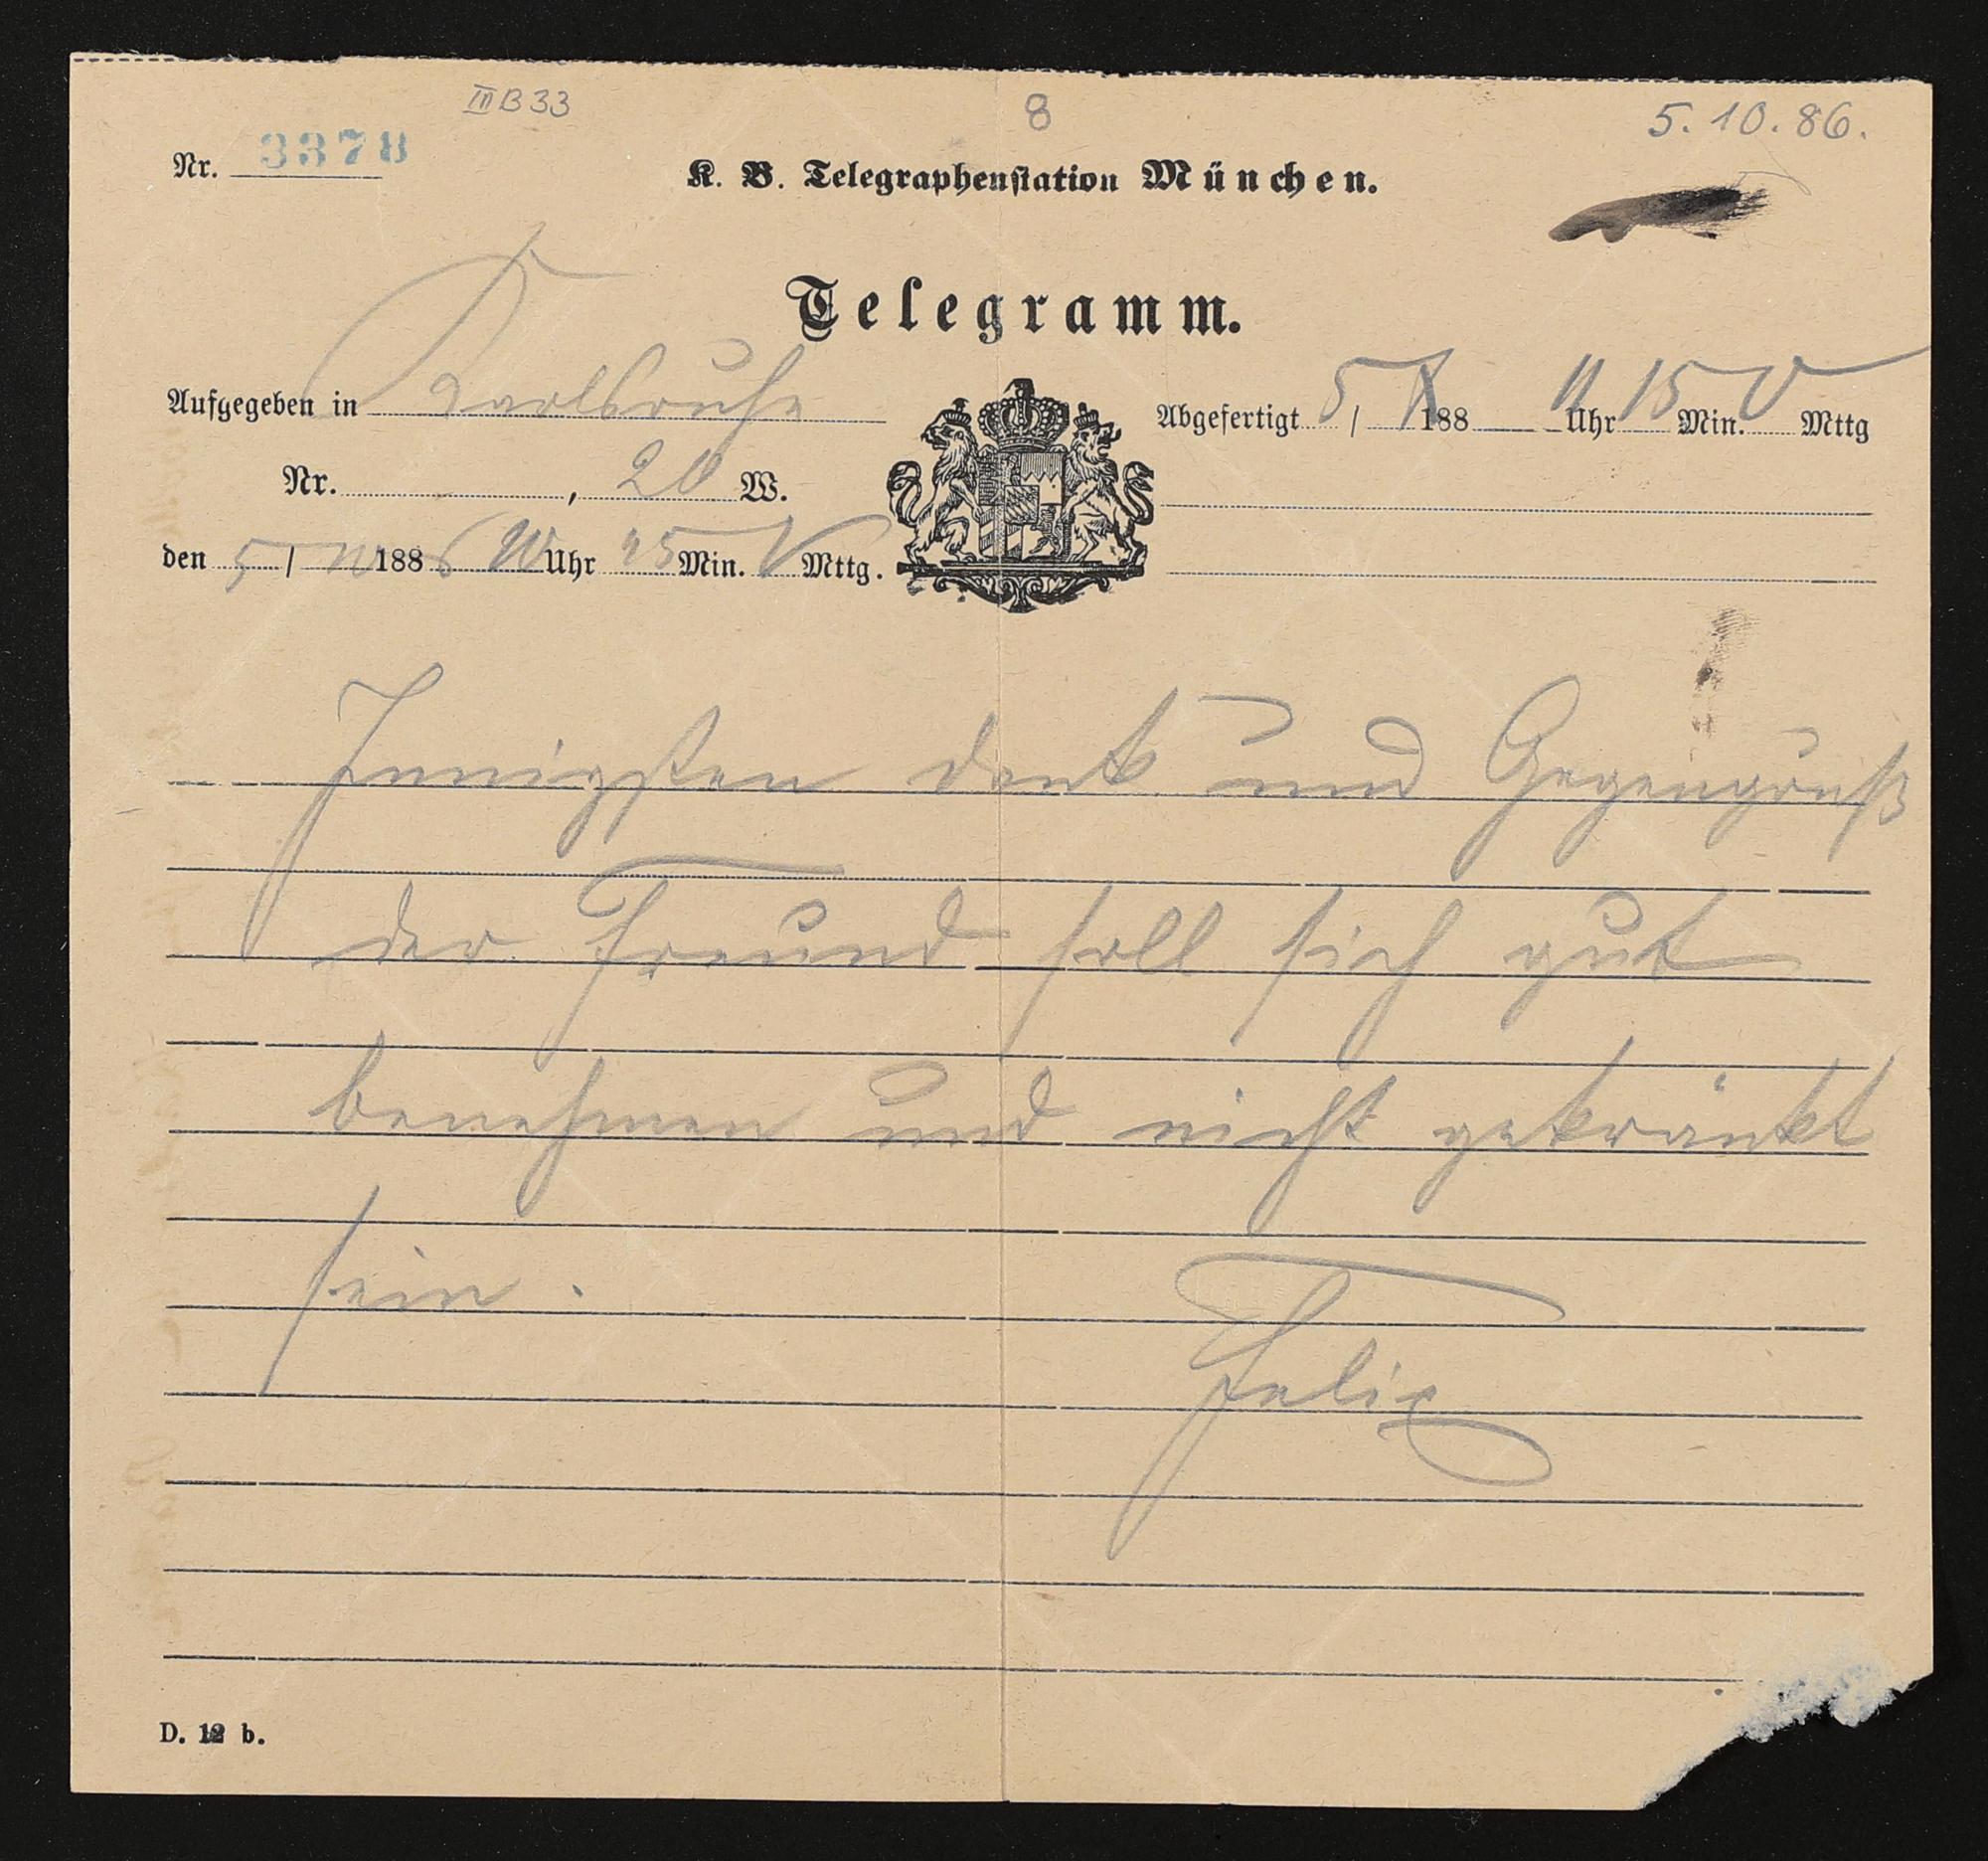 III B 33
8
5. 10. 86.
Nr. 3378
K. B. Telegraphenstation München.
Telegramm.
Aufgegeben in Karlsruhe
Abgefertigt 5 / X 188 Uhr 15 Min. V Mttg
Nr. , 20 W.
den 5 / 188 6 10 Uhr 25 Min. V Mttg.
Innigsten dank und Gegengruß
der Freund soll sich gut
benehmen und nicht gekränkt
sein .
Felix
D. 12 b.